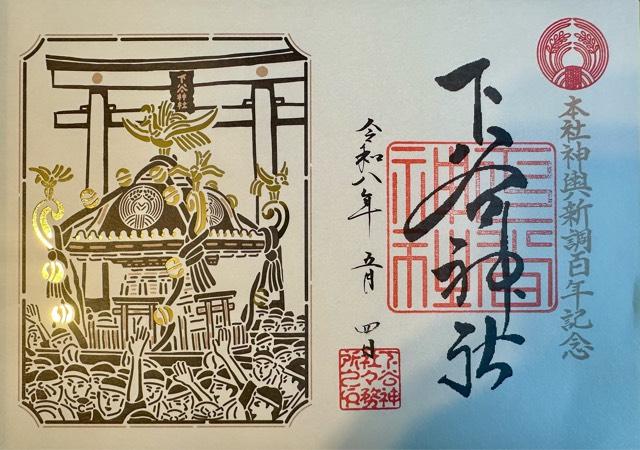 本社神輿新調百年記念
下谷神社
令和八年 五月 四日
下谷神社
下谷神
社々務
所之印